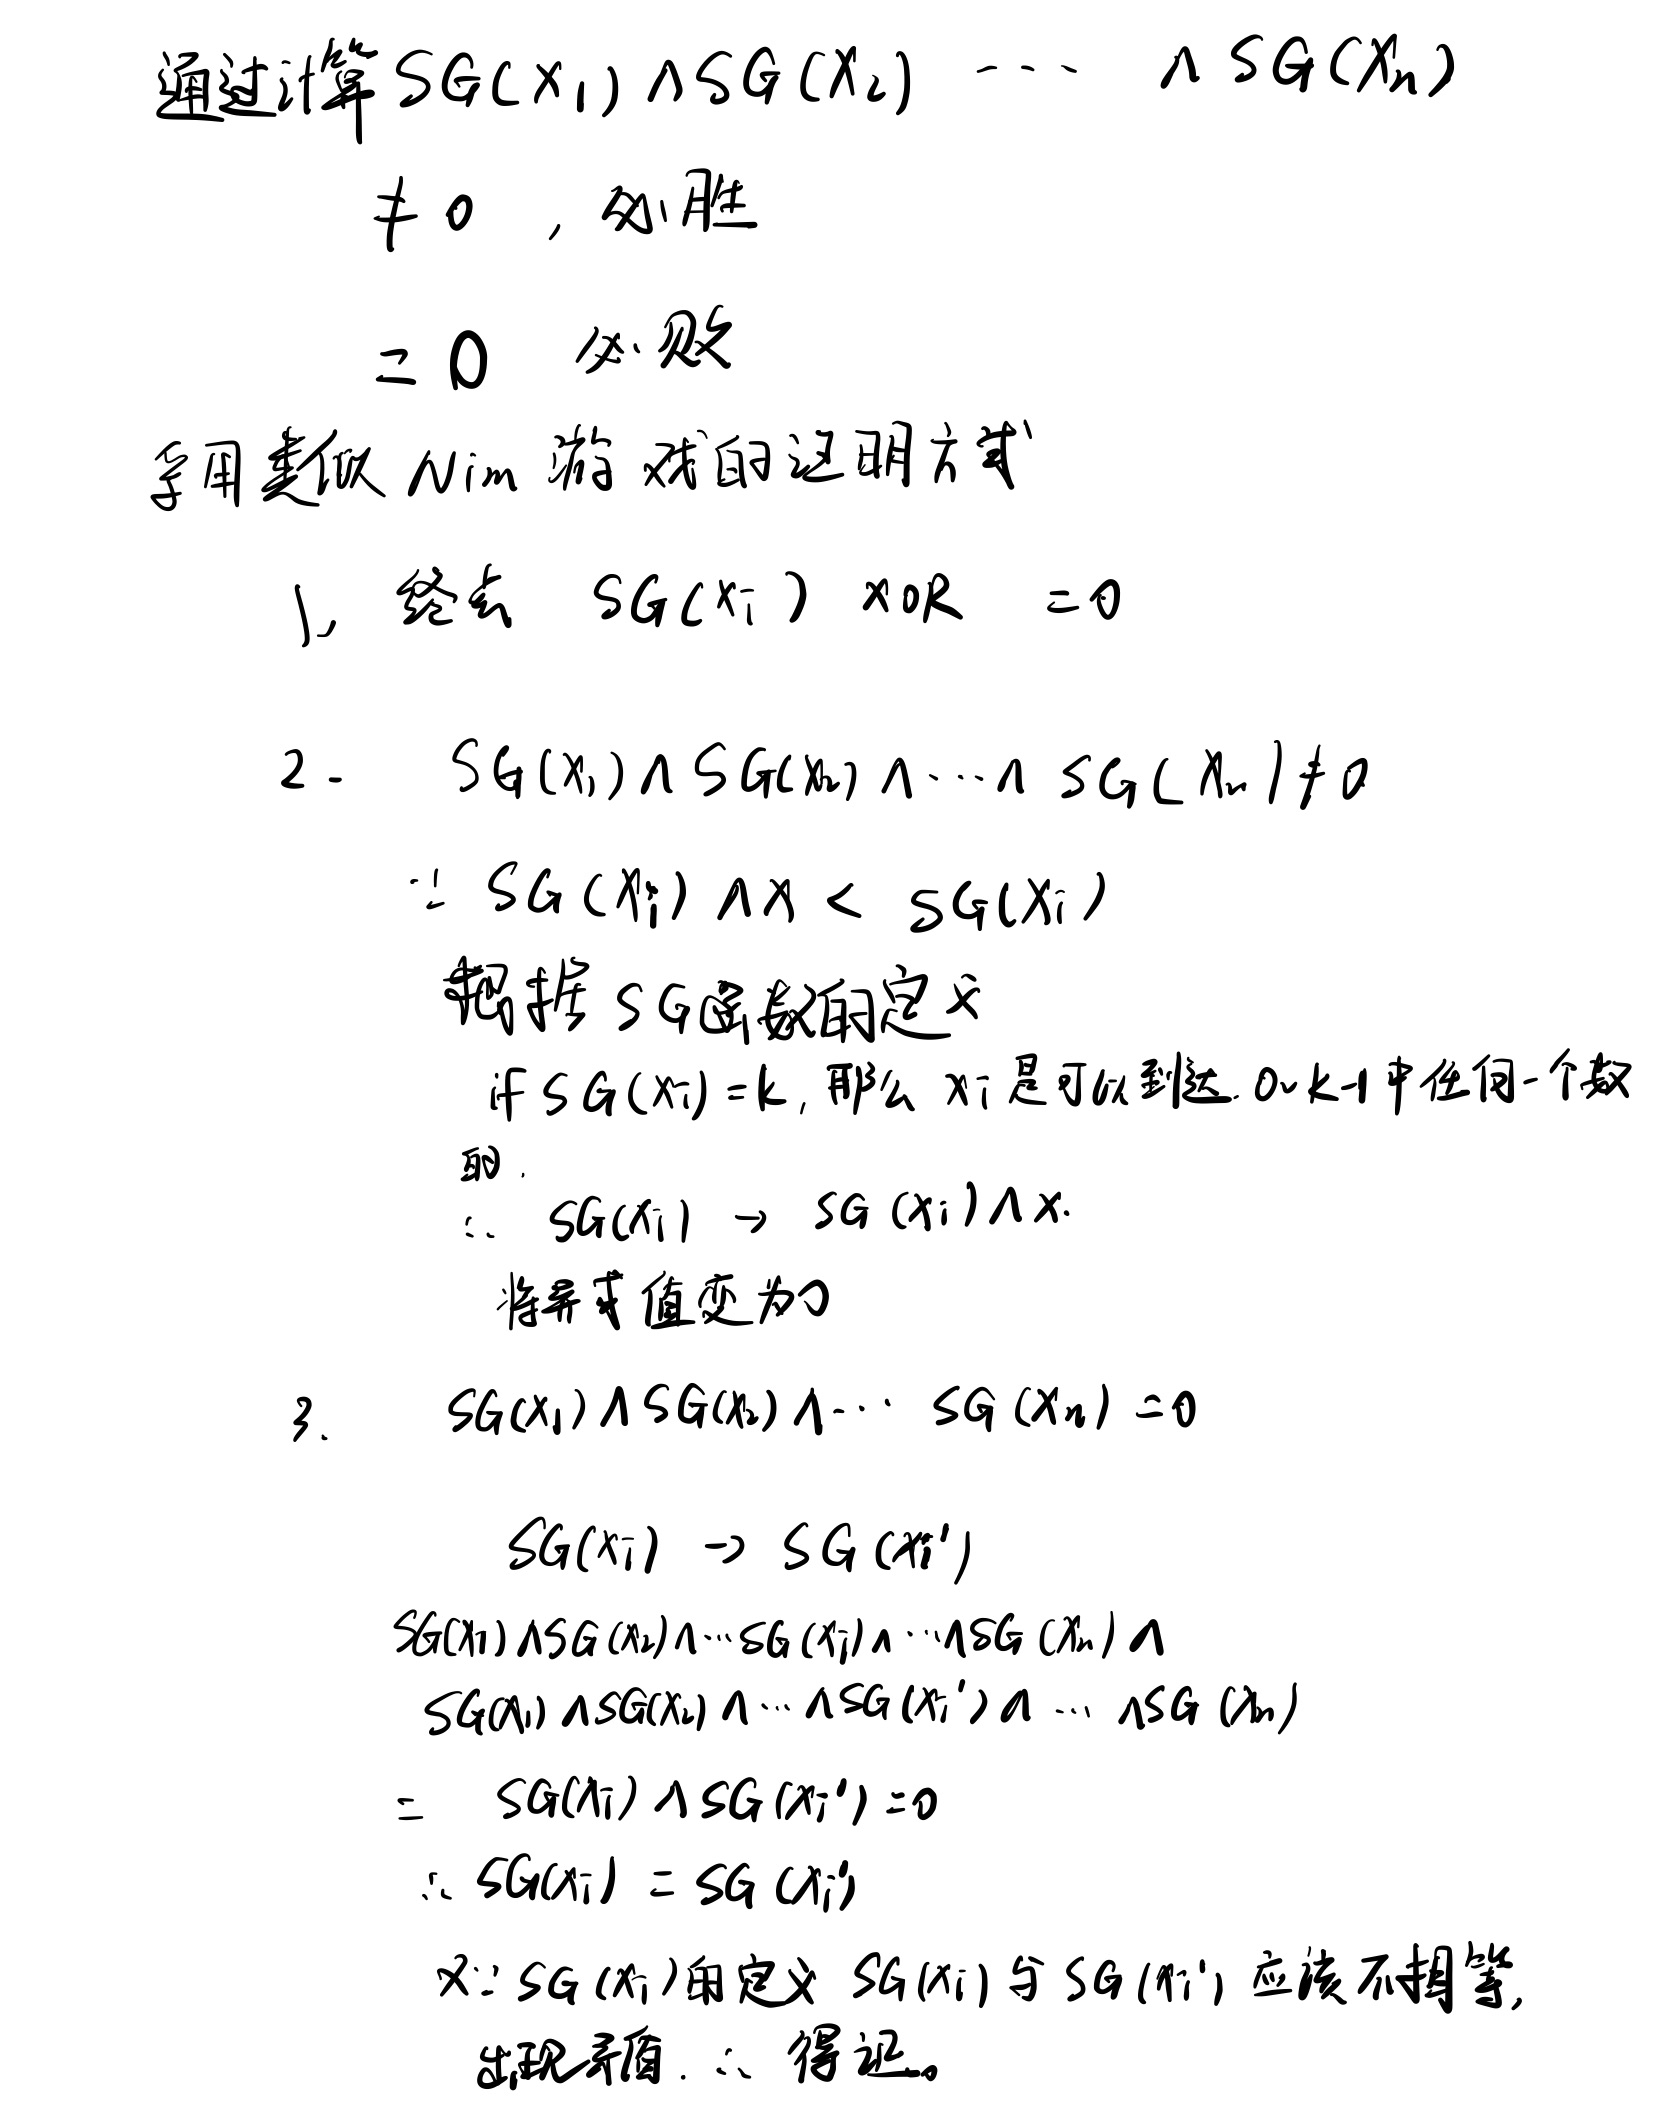 通过计算 SG(x₁) ∧ SG(x₂) ··· ∧ SG(xₙ)
≠ 0 , 必胜
= 0 必败
采用类似 Nim 游戏的证明方式
1, 终点 SG(xᵢ) XOR = 0
2. SG(x₁) ∧ SG(x₂) ∧ ··· ∧ SG(xₙ) ≠ 0
∵ SG(xᵢ) ∧ x < SG(xᵢ)
根据 SG函数的定义
if SG(xᵢ) = k, 那么 xᵢ 是可以到达 0~k-1 中任何一个数
的.
∴ SG(xᵢ) → SG(xᵢ) ∧ x.
将异或值变为0
3. SG(x₁) ∧ SG(x₂) ∧ ··· SG(xₙ) = 0
SG(xᵢ) → SG(xᵢ')
SG(x₁) ∧ SG(x₂) ∧ ··· SG(xᵢ) ∧ ··· ∧ SG(xₙ) ∧
SG(x₁) ∧ SG(x₂) ∧ ··· ∧ SG(xᵢ') ∧ ··· ∧ SG(xₙ)
= SG(xᵢ) ∧ SG(xᵢ') = 0
∴ SG(xᵢ) = SG(xᵢ')
又∵ SG(xᵢ)的定义 SG(xᵢ) 与 SG(xᵢ') 应该不相等,
出现矛盾. ∴ 得证。